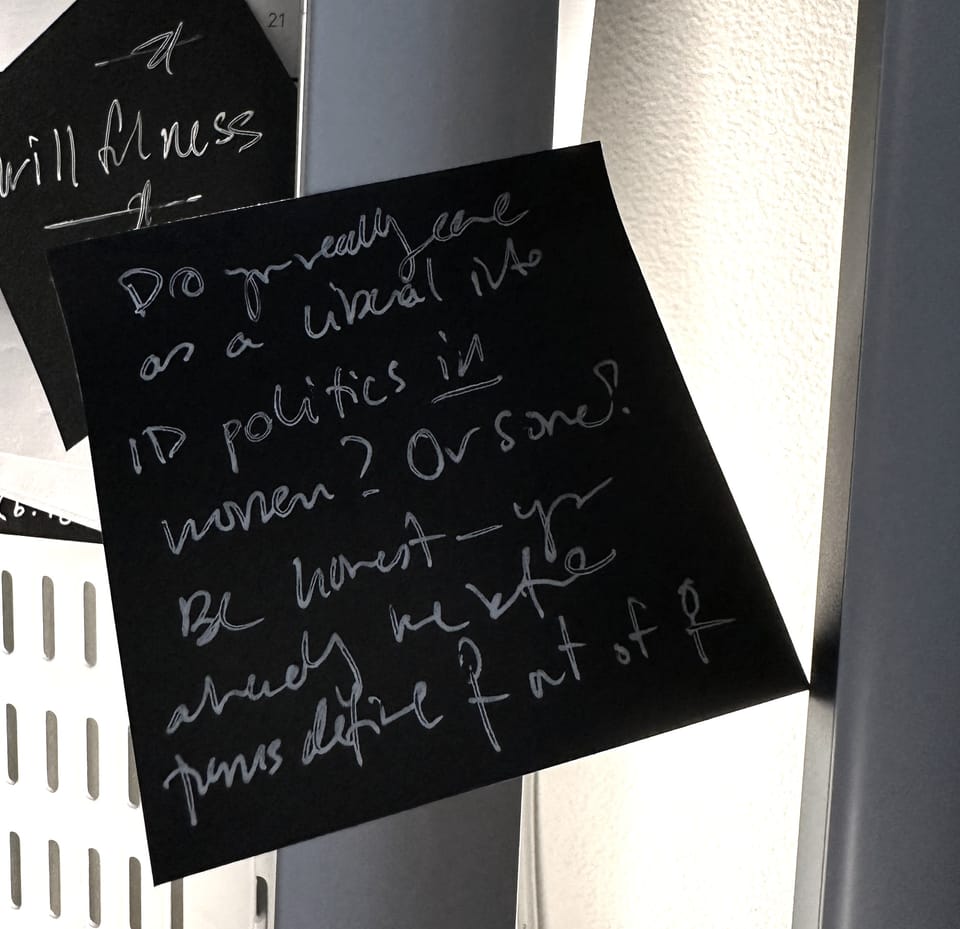 21
will fulness
Do yr really care
as a liberal into
ID politics in
women? Or some?
Be honest — yr
already
trans define ♀ out of ♀